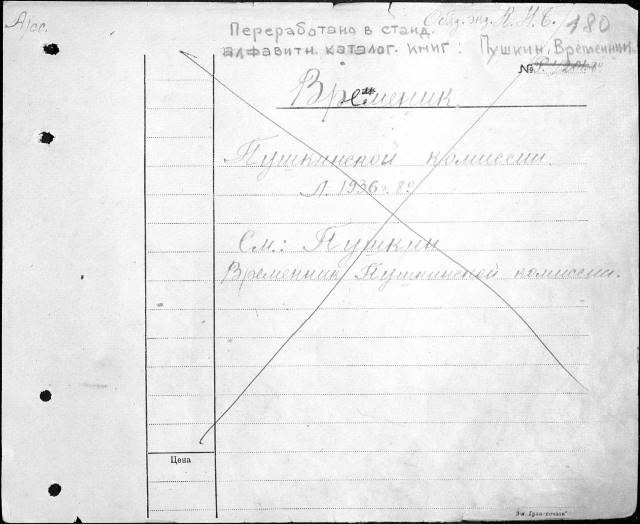 Общ. энц. К.Н.Б.
Переработано в станд.
алфавитн. каталог. книг: Пушкин. Временник
180
№
Временник
Пушкинской комиссии.
Л. 1936 г. 8º
См.: Пушкин
Временник Пушкинской комиссии.
Цена